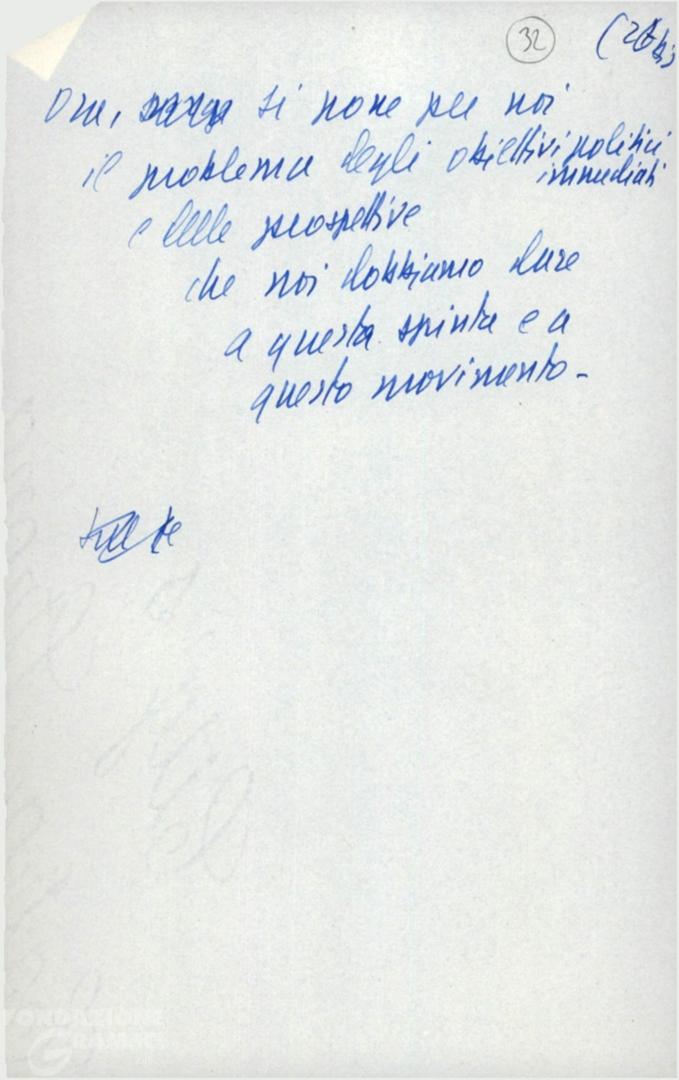 32
(26 bis
Ora, si pone per noi
il problema degli obiettivi politici
immediati
e delle prospettive
che noi dobbiamo dare
a questa spinta e a
questo movimento -
FONDAZIONE
GRAMSCI